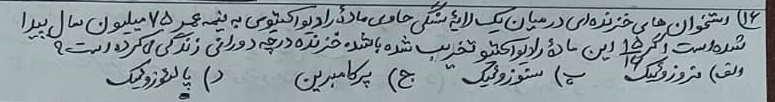 ۱۶) استخوان های خزنده ای در میان یک لایهٔ سنگی حاوی مادهٔ رادیواکتیوی به نیمه عمر ۷۵ میلیون سال پیدا
شده است اگر ۱۵/۱۶ این مادهٔ رادیواکتیو تخریب شده باشد، خزنده در چه دورانی زندگی می کرده است؟
الف) مزوزوئیک ب) سنوزوئیک ج) پرکامبرین د) پالئوزوئیک